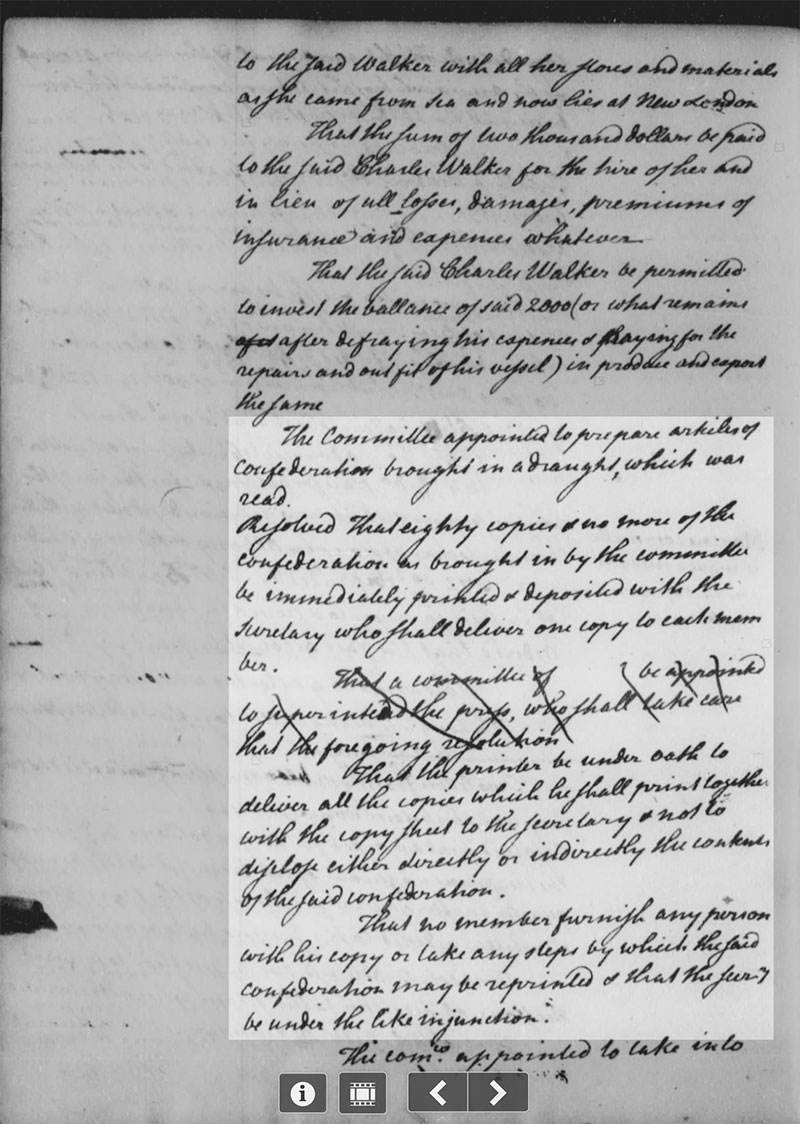 to the said Walker with all her stores and materials
as she came from sea and now lies at New London
That the sum of two thousand dollars be paid
to the said Charles Walker for the hire of her and
in lieu of all losses, damages, premiums of
insurance and expences whatever
That the said Charles Walker be permitted
to invest the ballance of said 2000 (or what remains
after defraying his expences & paying for the
repairs and out fit of his vessel) in produce and export
the same
The Committee appointed to prepare articles of
confederation brought in a draught, which was
read.
Resolved That eighty copies & no more of the
confederation as brought in by the committee
be immediately printed & deposited with the
secretary who shall deliver one copy to each mem
ber.
That a committee of be appointed
to superintend the press, who shall take care
that the foregoing resolution
That the printer be under oath to
deliver all the copies which he shall print together
with the copy sheet to the secretary & not to
disclose either directly or indirectly the contents
of the said confederation.
That no member furnish any person
with his copy or take any steps by which the said
confederation may be reprinted & that the secry
be under the like injunction.
The comee. appointed to take into